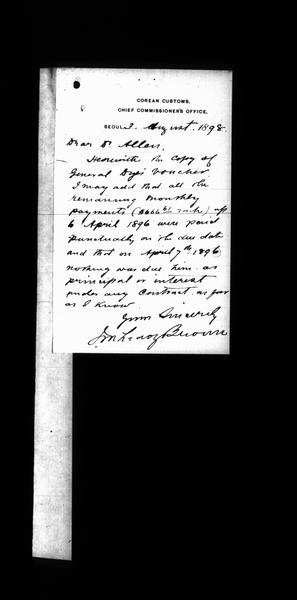 COREAN CUSTOMS,
CHIEF COMMISSIONER'S OFFICE,
SEOUL, 3. August. 1898
Dear Dr Allen,
Herewith the copy of
General Dye's Voucher
I may add that all the
remaining monthly
payments ( each) up to
6 April 1896 were paid
punctually on the due date
and that on April 7th 1896
nothing was due him as
principal or interest
under any Contract as far
as I know
Yours Sincerely
J McLeavy Brown